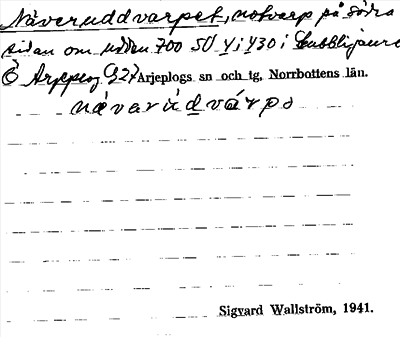 Näveruddvarpet, notvarp på södra
sidan om udden 700 SV Y i Y30 i
Ö Arjeplog G27 Arjeplogs sn och tg, Norrbottens län.
návarúdvárpə
Sigvard Wallström, 1941.